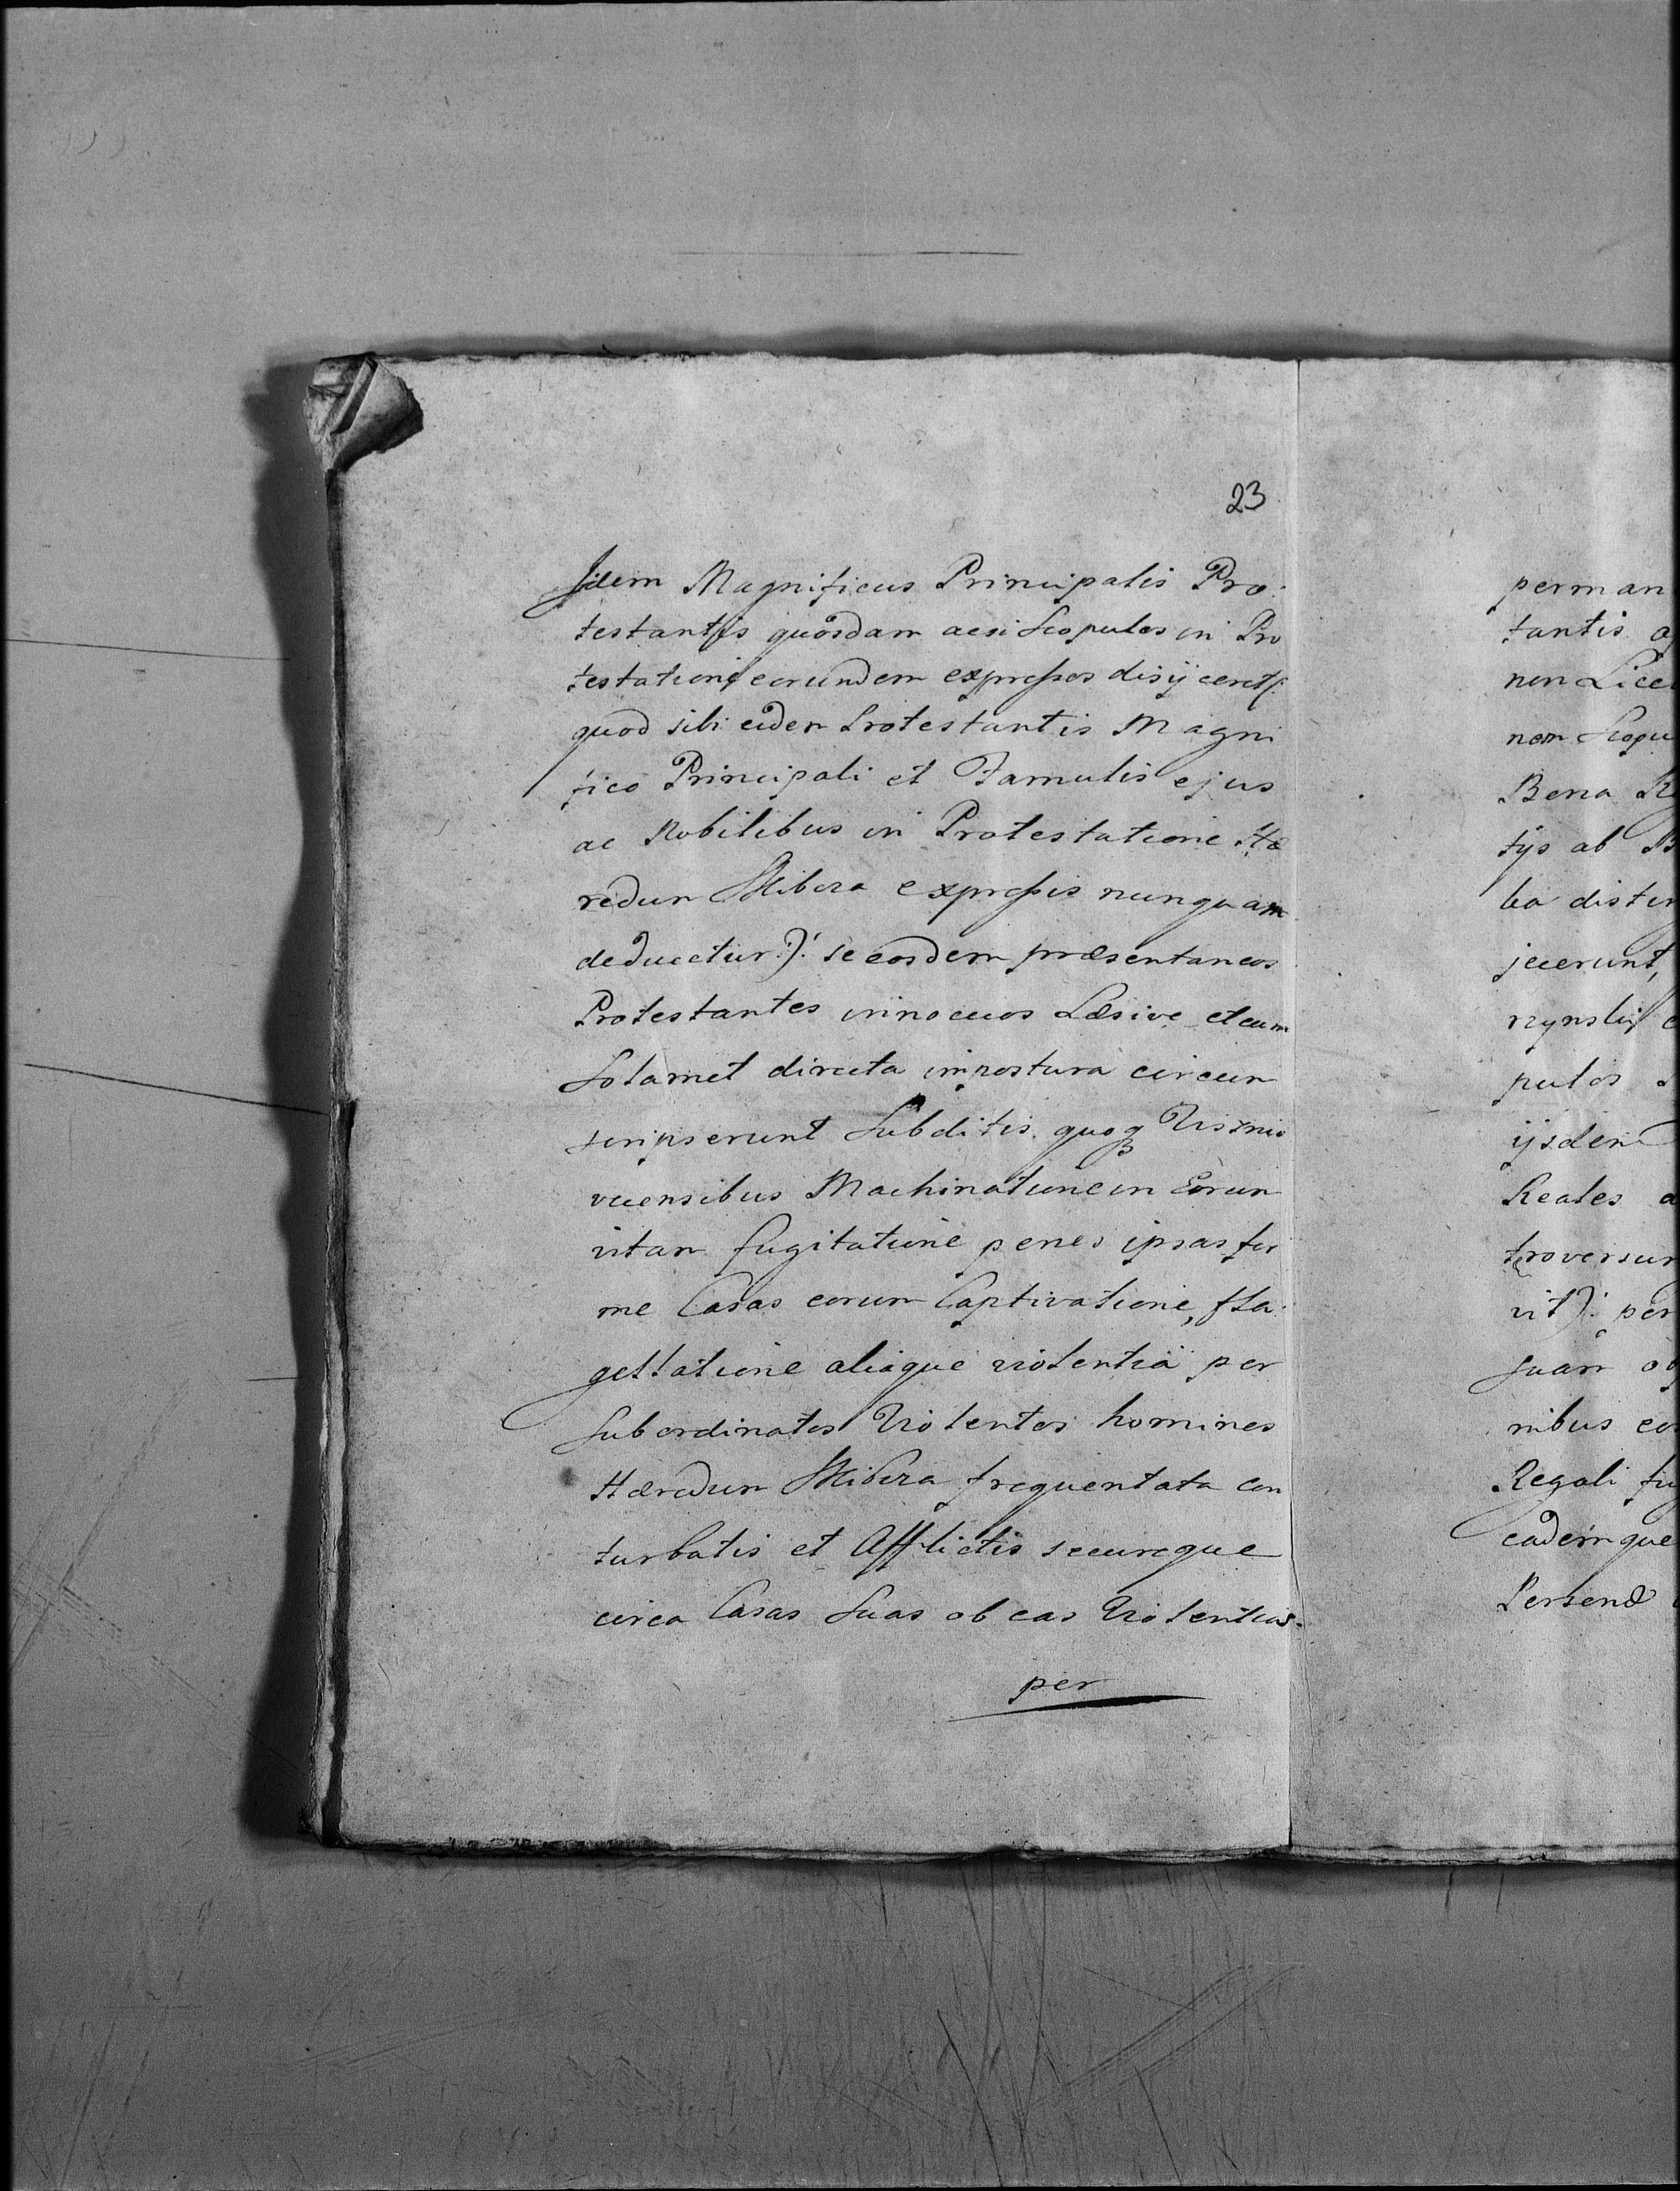 23
Idem Magnificus Principalis Pro:
testantis quosdam acsi Scopulos in Pro
testatione eorundem expressos disijceret /:
quod sibi eidem Protestantis Magni
fico Principali et Famulis ejus
ac Nobilibus in Protestatione Hæ
redum Skibera expressis nunquam
deducetur :/ se eosdem præsentaneos
Protestantes innocuos Læsive et cum
Solamet directa impostura circum
scripserunt Subditis quoq Tisznio
vicensibus Machinatione in Eorum
vitam fugitatione penes ipsas fir
me Casas eorum Captivatione, fla:
gellatione aliaque violentia per
Subordinatos Violentos homines
Hæredum Skibera frequentata con
turbatis et Afflictis secureque
circa Casas Suas ob eas Violentias
per
perman
tantis
non Lice
nem Scopu
Bona
tys ab
ba distin
jecerunt,
rzynskij
pulos
ijsdem
Reales
troversum
vit :/ per
suam
nibus eos
Regali
eademque
Personæ